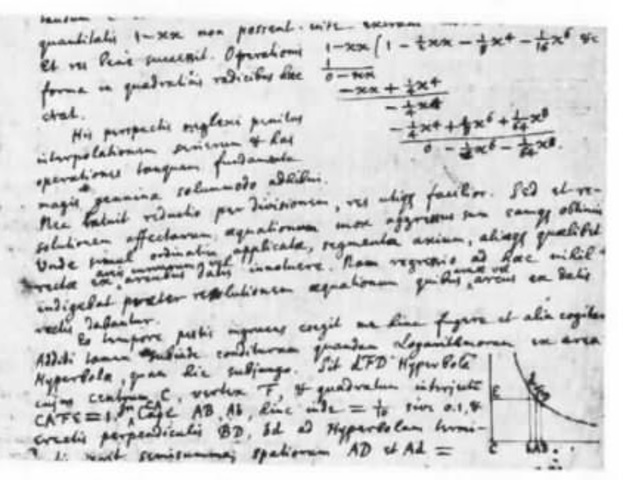 quantitatis 1-xx non possent
Et res bene successit. Operationis
forma in quadraticis radicibus hæc
erat.
1-xx (1 - ½xx - ⅛x⁴ - 1/16x⁶ &c
1
0-xx
-xx + ¼x⁴
- ¼x⁴
- ¼x⁴ + ⅛x⁶ + 1/64x⁸
0 - ⅛x⁶ - 1/64x⁸.
His perspectis neglexi penitus
interpolationem serierum & has
operationes tanquam fundamenta
magis genuina solummodo adhibui
Nec latuit reductio per divisionem, res utiq facilior. Sed et re-
solutionem affectarum æquationum mox aggressus sum eamq obtinui
Unde simul ordinatim applicatæ, segmenta axium, aliæq quælibet
rectæ ex areis curvarum vel arcubus datis innotuere. Nam regressio ad hæc nihil
indigebat præter resolutionem æquationum quibus areæ vel arcus ex datis
rectis dabantur.
Eo tempore pestis ingruens coegit me hinc fugere et alia cogitare
Addidi tamen subinde condituram quandam Logarithmorum ex area
Hyperbolæ, quam hic subjungo. Sit dFD Hyperbola
cujus centrum C, vertex F, & quadratum interjectum
CAFE = 1. In CA cape AB, Ab, hinc inde = 1/10 sive 0.1, &
erectis perpendiculis BD, bd ad Hyperbolam termi-
semisumma spatiorum AD et Ad =
E
C
b A B